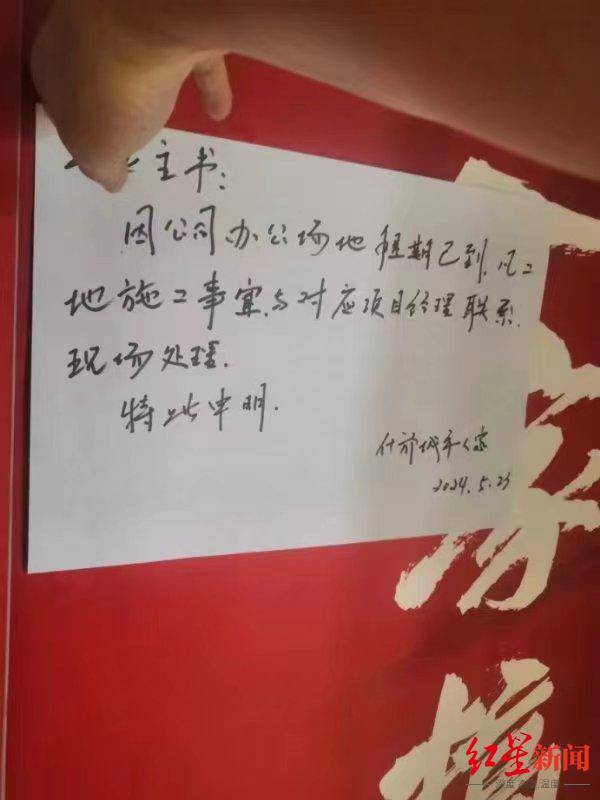 主书：
因公司办公场地租期已到,凡工
地施工事宜,与对应项目经理联系,
现场处理.
特此申明.
什邡城市人家
2024.5.23
家
红星新闻
深度 态度 温度